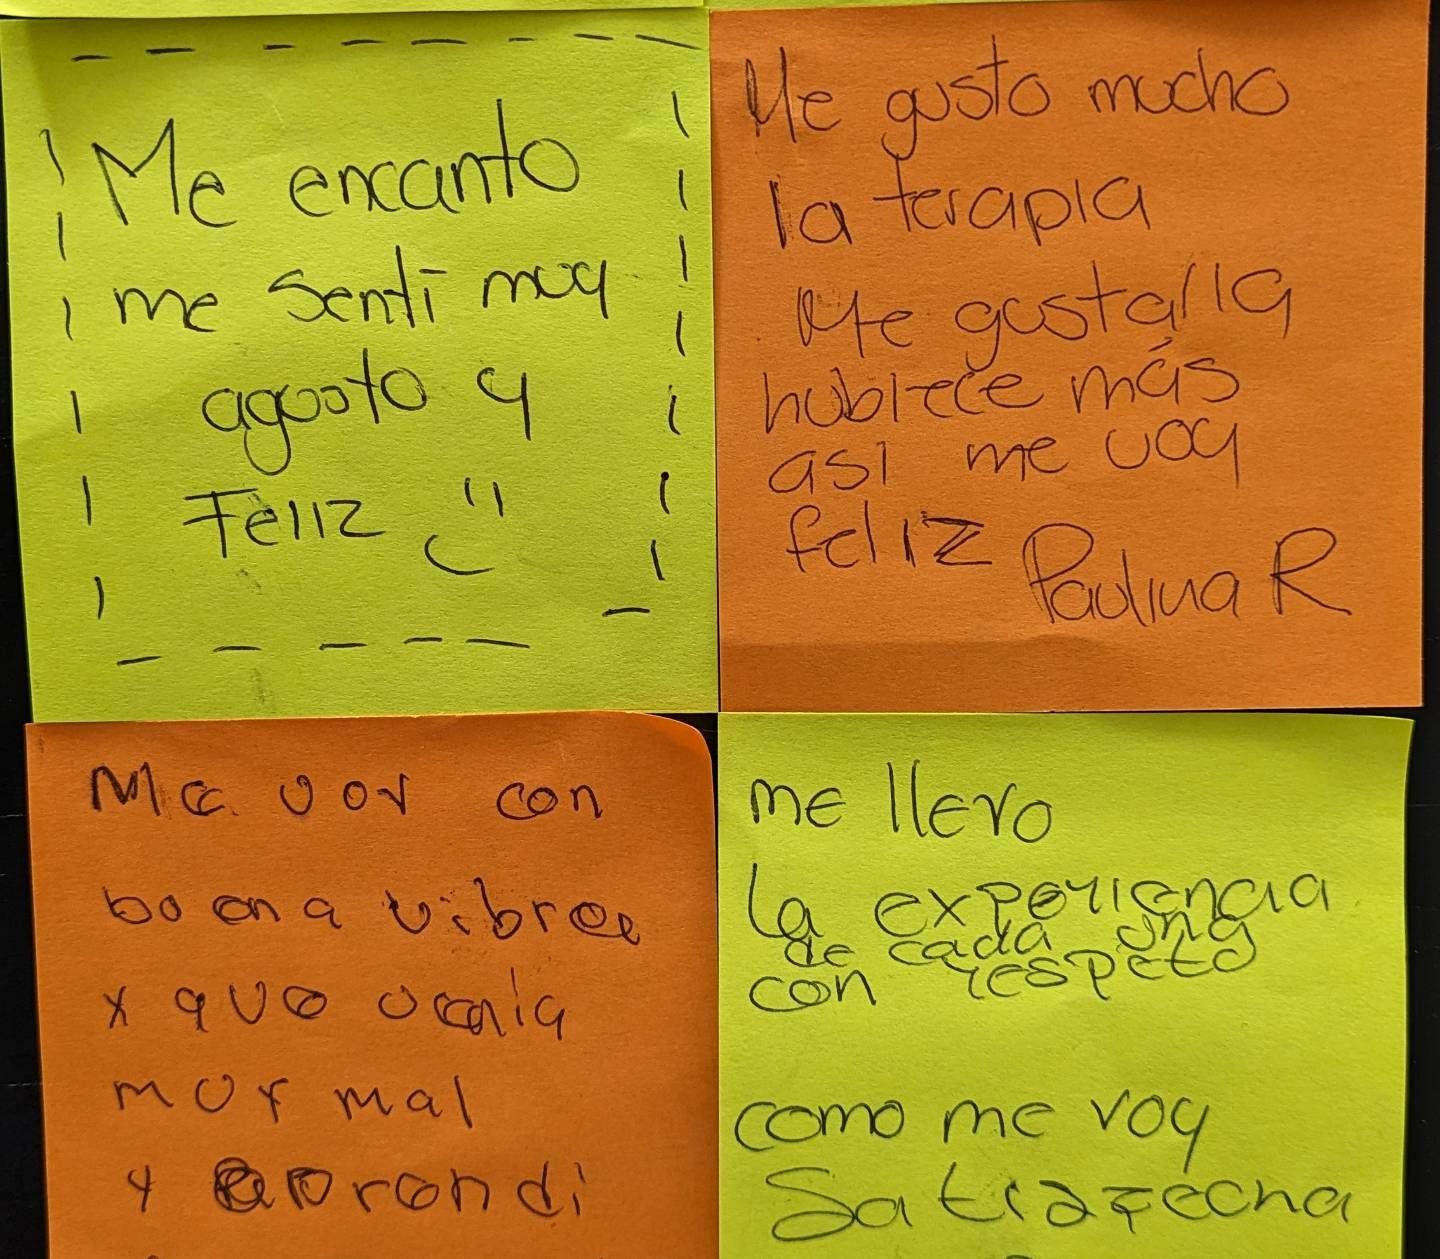 Me encanto
me sentí muy
agusto y
Feliz
Me gusto mucho
la terapia
Me gustaría
hubiece más
asi me voy
feliz Paulina R
Me voy con
buena vibra
x que venia
muy mal
y aprendi
me llevo
la experiencia
de cada una
con respeto
como me voy
Satisfecha